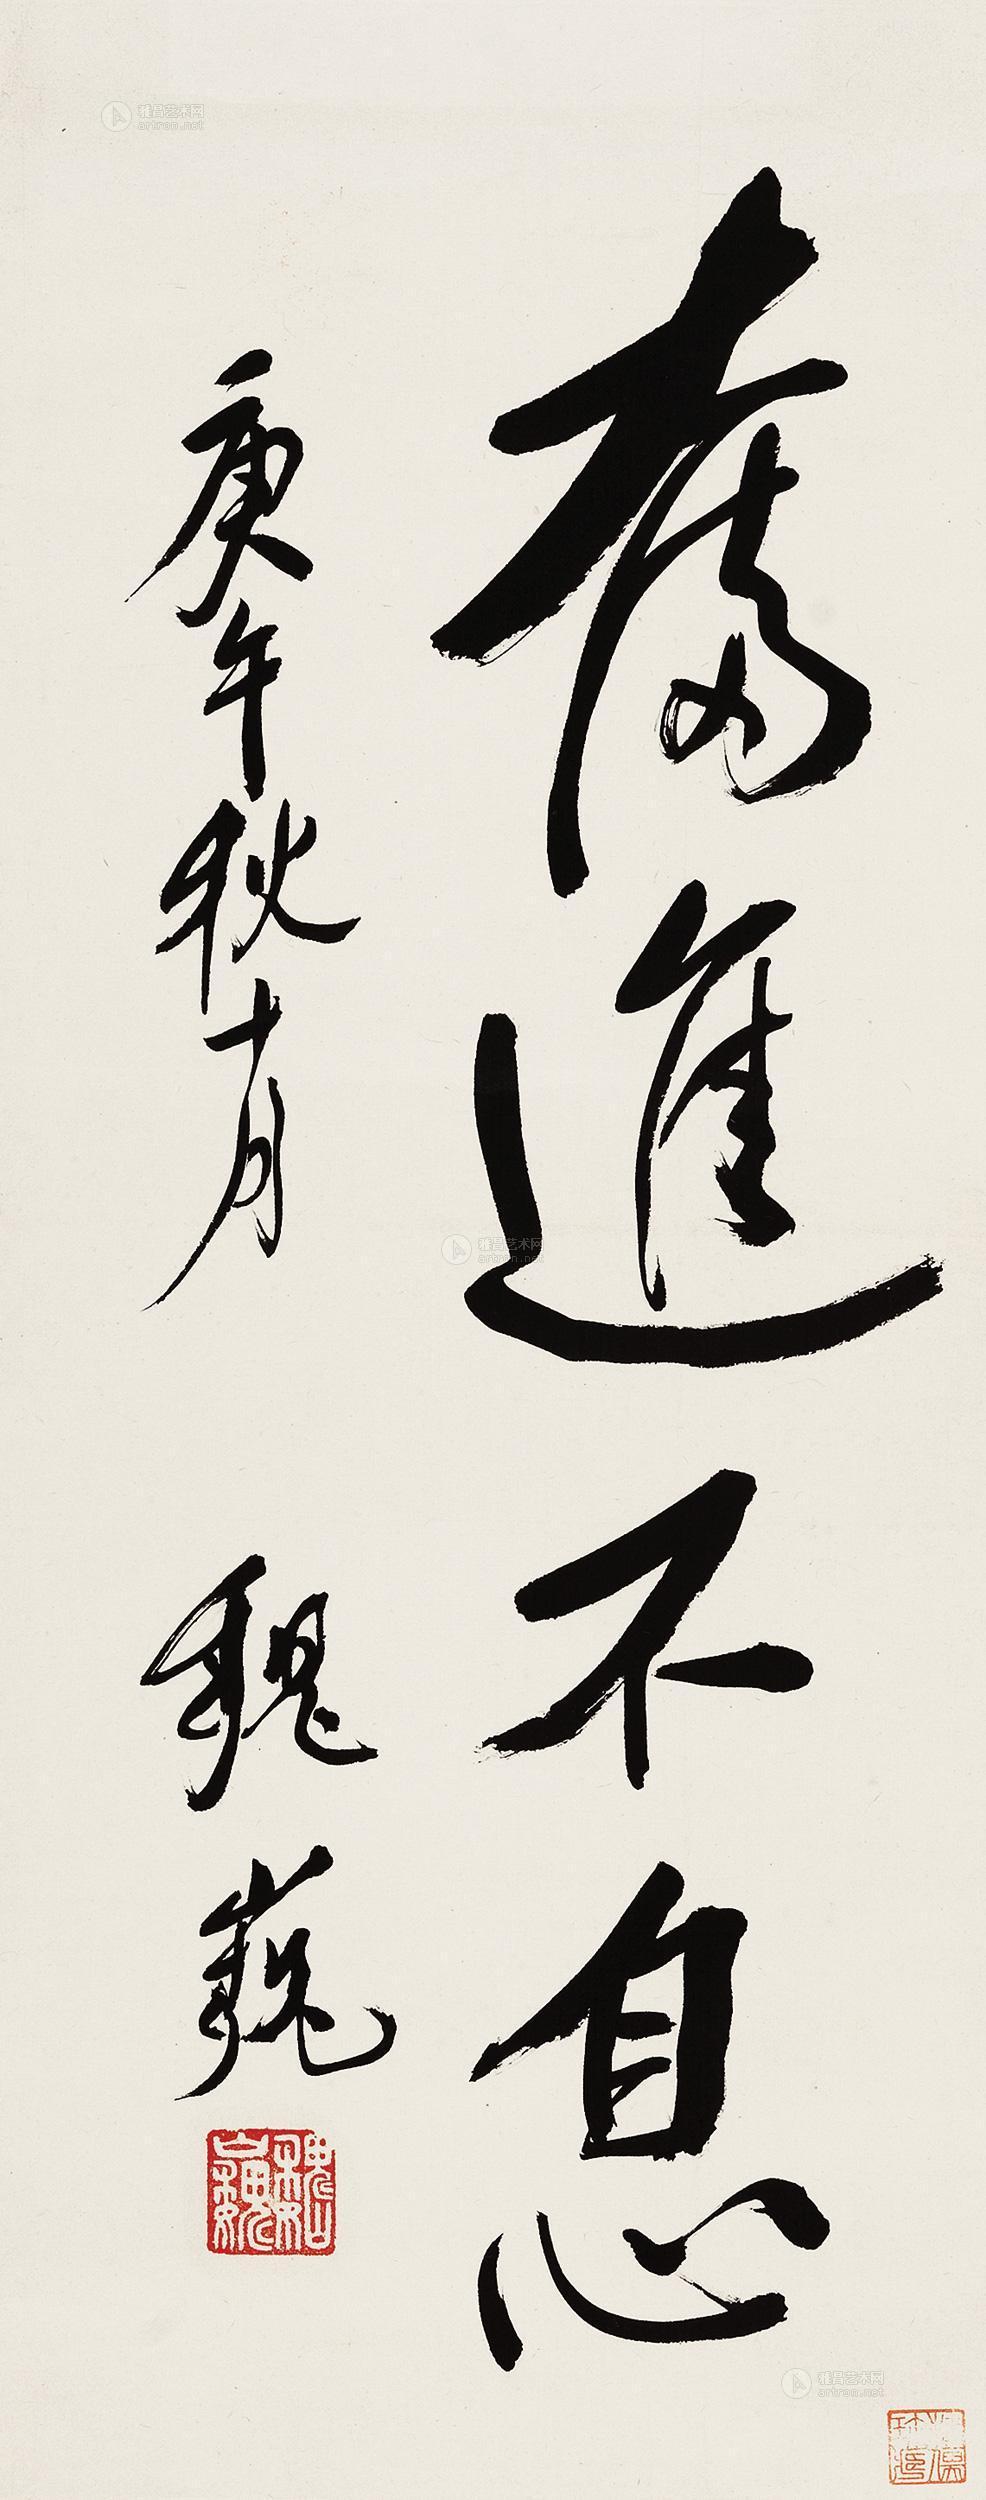 奮進不息
庚午秋十月 魏巍
雅昌艺术网
artron.net
雅昌艺术网
artron.net
雅昌艺术网
artron.net